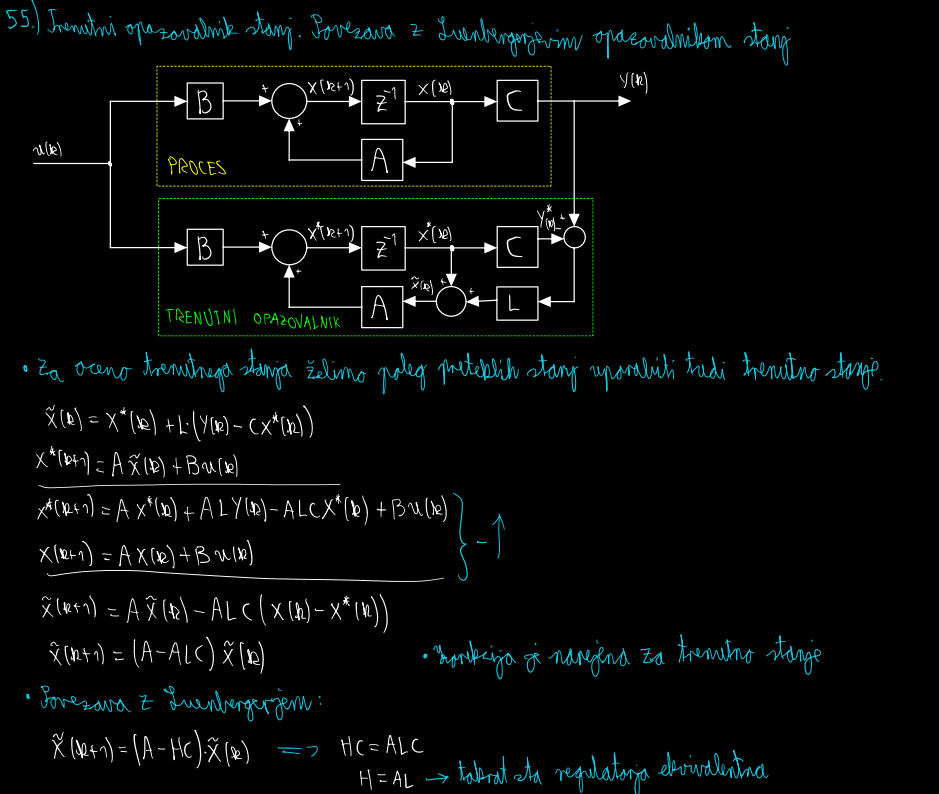 55.) Trenutni opazovalnik stanj. Povezava z Luenbergerjevim opazovalnikom stanj
B + x(k+1) z⁻¹ x(k) C y(k)
+
u(k)
A
PROCES
B + x*(k+1) z⁻¹ x*(k) C y*(k) - +
+
A x̃(k) + + L
TRENUTNI OPAZOVALNIK
• Za oceno trenutnega stanja želimo poleg preteklih stanj uporabiti tudi trenutno stanje.
x̃(k) = x*(k) + L·(y(k) - Cx*(k))
x*(k+1) = A x̃(k) + B u(k)
x*(k+1) = A x*(k) + A L y(k) - A L C x*(k) + B u(k)
} - ↑
x(k+1) = A x(k) + B u(k)
x̃(k+1) = A x̃(k) - A L C (x(k) - x*(k))
x̃(k+1) = (A - A L C) x̃(k)
• Korekcija je narejena za trenutno stanje
• Povezava z Luenbergerjem:
x̃(k+1) = (A - HC)·x̃(k) => HC = ALC
H = AL → takrat sta regulatorja ekvivalentna